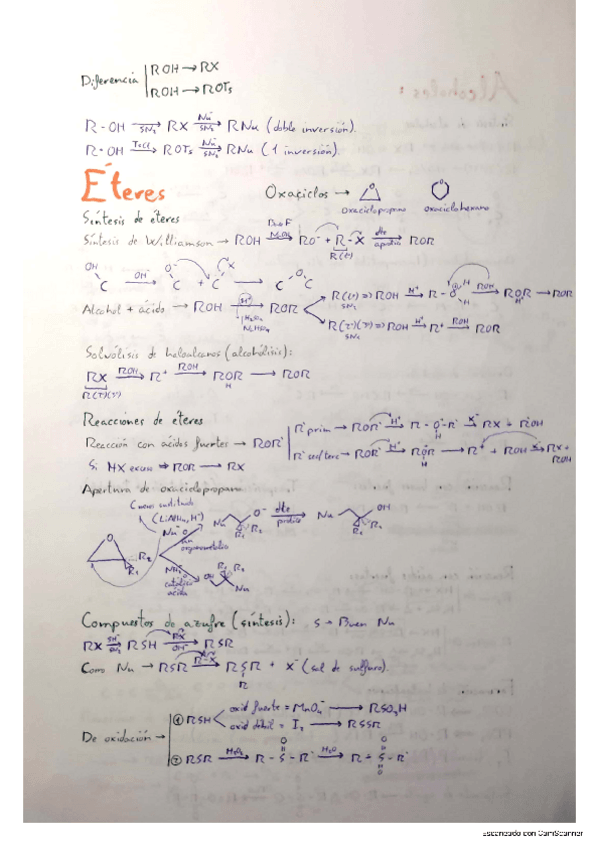 Diferencia ROH → RX
ROH → ROTs
R-OH →(SN2) RX →(Nu⁻, SN2) RNu (doble inversión).
R-OH →(TsCl) ROTs →(Nu⁻, SN2) RNu (1 inversión).
Éteres
Oxaciclos →
oxaciclopropano oxaciclohexano
Síntesis de éteres
Síntesis de Williamson → ROH → RO⁻ + R-X → ROR
R(1)
OH C →(OH⁻) O⁻ C + C X → C O C
Alcohol + ácido → ROH →(H⁺) ROR
H₂SO₄
R(1) => ROH →(H⁺) R-O H H →(ROH) ROR H → ROR
SN2
R(2)(3) => ROH →(H⁺) R⁺ →(ROH) ROR
SN1
Solvólisis de haloalcanos (alcohólisis):
RX →(ROH) R⁺ →(ROH) ROR H → ROR
R(2)(3)
Reacciones de éteres
Reacción con ácidos fuertes → ROR'
R' prim → ROR' →(H⁺) R-O-R' H →(X⁻) RX + R'OH
R' sec/terc → ROR' →(H⁺) ROR H → R⁺ + ROH →(X⁻) RX + ROH
Si HX exceso → ROR → RX
Apertura de oxaciclopropano
C menos sustituido
(LiAlH₄, H⁺)
Nu O⁻ R₁ R₂ → Nu OH R₁ R₂
organometálico
O R₁ R₂
catálisis ácida
OH R₁ R₂ Nu
Compuestos de azufre (síntesis): S → Buen Nu
RX →(SH⁻) RSH →(RX, OH⁻) RSR
Como Nu → RSR →(R-X) RSR R + X⁻ (sal de sulfuro).
De oxidación →
① RSH oxid fuerte = MnO₄⁻ → RSO₃H
oxid débil = I₂ → RSSR
② RSR →(H₂O₂) R-S-R' O →(H₂O₂) R-S-R' O O
Escaneado con CamScanner